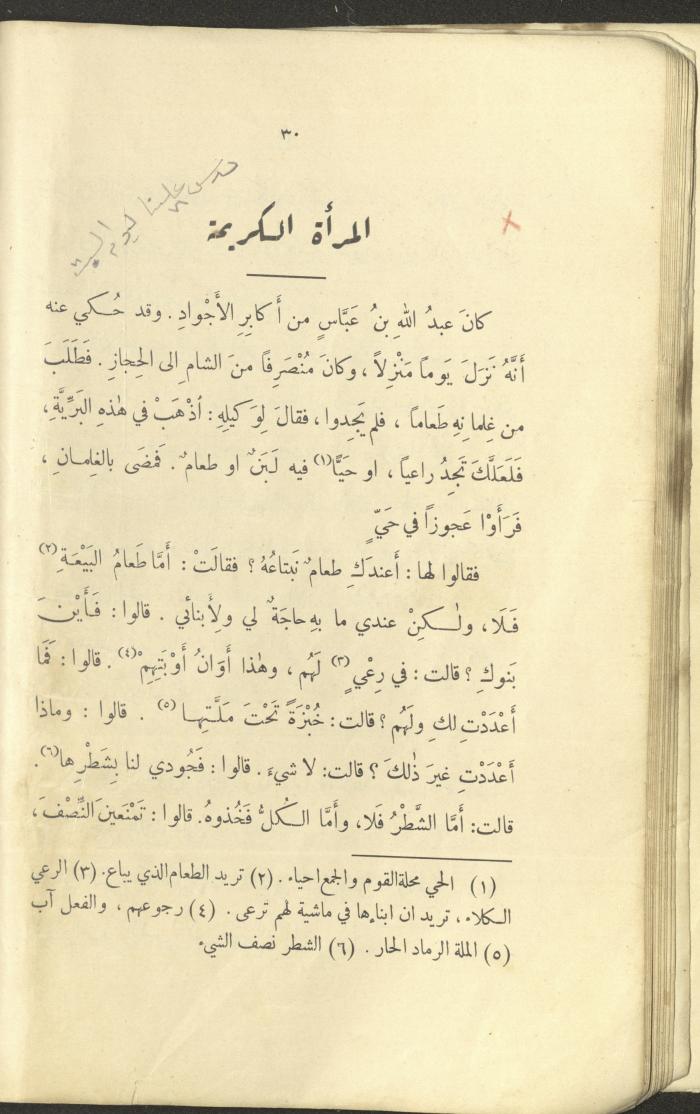 ٣٠
درس علينا ليوم السبت
المرأة الكريمة
كانَ عبدُ اللهِ بنُ عَبَّاسٍ من أَكابِرِ الأَجْوادِ . وقد حُكي عنه
أَنَّهُ نَزَلَ يَوماً مَنْزِلاً ، وكانَ مُنْصَرِفاً منَ الشام الى الحِجازِ . فَطَلَبَ
من غِلمانِهِ طَعاماً ، فلم يَجِدوا ، فقالَ لِوَكيلِهِ : أذْهَبْ في هٰذهِ البَرِّيَّةِ ،
فَلَعَلَّكَ تَجِدُ راعياً ، او حَيًّا (١) فيه لَبَنٌ او طعامٌ . فَمضَى بالغِلمانِ ،
فَرَأَوْا عَجوزاً في حَيٍّ
فقالوا لها : أَعندَكِ طعامٌ نَبتاعُهُ ؟ فقالَتْ : أَمَّا طَعامُ البَيْعَةِ (٢)
فَلَا ، ولٰكِنْ عندي ما بِهِ حاجَةٌ لي ولِأَبنائي . قالوا : فَأَيْنَ
بَنوكِ ؟ قالت : في رِعْيٍ (٣) لَهُم ، وهٰذا أَوَانُ أَوْبَتِهِمْ (٤) . قالوا : فَمَا
أَعْدَدْتِ لكِ ولَهُم ؟ قالت : خُبْزَةً تَحْتَ مَلَّتِها (٥) . قالوا : وماذا
أَعْدَدْتِ غيرَ ذٰلكَ ؟ قالت: لا شيءَ . قالوا : فَجُودي لنا بِشَطْرِها (٦) .
قالت: أَمَّا الشَّطْرُ فَلا، وأَمَّا الكُلُّ فَخُذوهُ. قالوا : تَمْنَعينَ النِّصْفَ ،
(١) الحي محلة القوم والجمع احياء . (٢) تريد الطعام الذي يباع. (٣) الرعي
الكلاء ، تريد ان ابناءها في ماشية لهم ترعى . (٤) رجوعهم ، والفعل آب
(٥) الملة الرماد الحار . (٦) الشطر نصف الشيء